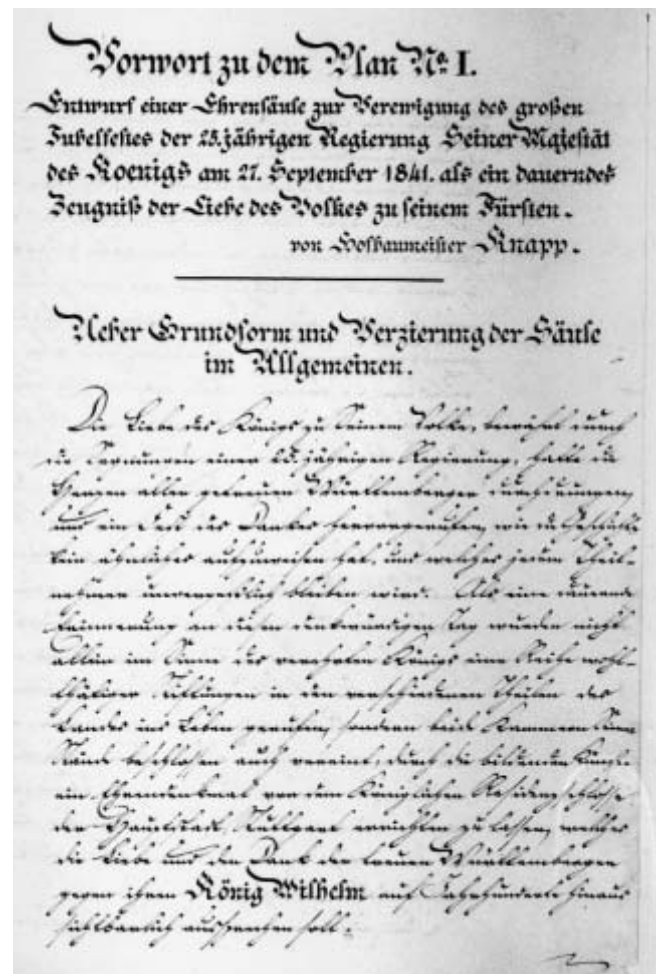 Vorwort zu dem Plan No. I.
Entwurf einer Ehrensäule zur Verewigung des großen
Jubelfestes der 25.jährigen Regierung Seiner Majestät
des Koenigs am 27. September 1841. als ein dauerndes
Zeugniß der Liebe des Volkes zu seinem Fürsten.
von Hofbaumeister Knapp.
Ueber Grundform und Verzierung der Säule
im Allgemeinen.
Die Liebe des Königs zu Seinem Volke, bewährt durch
die Segnungen einer 25.jährigen Regierung, hatte die
Herzen aller getreuen Württemberger durchdrungen,
und ein Fest des Dankes hervorgerufen, wie die Geschichte
kein ähnliches aufzuweisen hat, und welches jedem Theil-
nehmer unvergesslich bleiben wird. Als eine dauernde
Erinnerung an diesen denkwürdigen Tag wurden nicht
allein im Sinne des verehrten Königs eine Reihe wohl-
thätiger Stiftungen in den verschiedenen Theilen des
Landes ins Leben gerufen, sondern beide Kammern Seiner
Stände beschlossen auch vereint, durch die bildenden Künste
ein Ehrendenkmal vor dem Königlichen Residenzschlosse
der Hauptstadt Stuttgart errichten zu lassen, welches
die Liebe und den Dank der treuen Württemberger
gegen ihren König Wilhelm auf Jahrhunderte hinaus
sichtbarlich aussprechen soll.